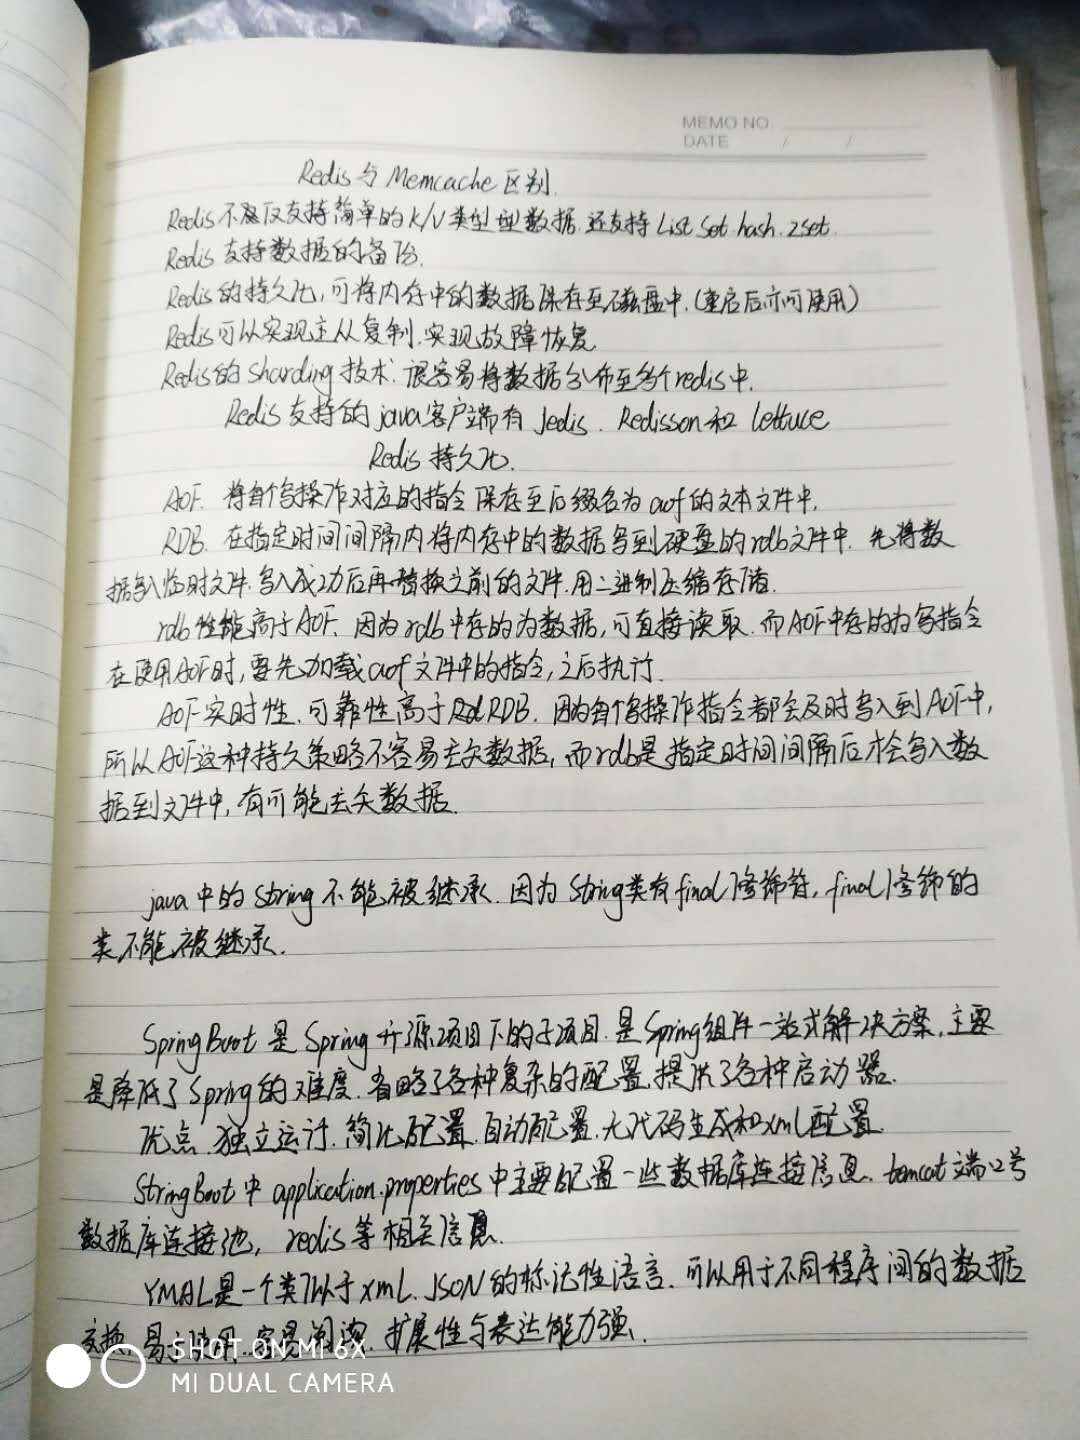 MEMO NO.
DATE / /
Redis与Memcache区别.
Redis不仅仅支持简单的K/V类型型数据.还支持List Set.hash.zset.
Redis支持数据的备份.
Redis的持久化,可将内存中的数据保存至磁盘中.(重启后亦可使用)
Redis可以实现主从复制.实现故障恢复
Redis的Sharding技术.很容易将数据分布至多个redis中.
Redis支持的java客户端有Jedis.Redisson和lettuce
Redis持久化.
AOF.将每个写操作对应的指令保存至后缀名为aof的文本文件中.
RDB.在指定时间间隔内将内存中的数据写到硬盘的rdb文件中.先将数
据写入临时文件.写入成功后再替换之前的文件.用二进制压缩存储.
rdb性能高于AOF.因为rdb中存的为数据,可直接读取.而AOF中存的为写指令
在使用AOF时,要先加载aof文件中的指令,之后执行.
AOF实时性.可靠性高于RDB.因为每个写操作指令都会及时写入到AOF中,
所以AOF这种持久策略不容易丢失数据,而rdb是指定时间间隔后才会写入数
据到文件中,有可能丢失数据.
java中的String不能被继承.因为String类有final修饰符,final修饰的
类不能被继承.
SpringBoot是Spring开源项目下的子项目.是Spring组件一站式解决方案,主要
是降低了Spring的难度.省略了各种复杂的配置.提供了各种启动器.
优点.独立运行.简化配置.自动配置.无代码生成和xml配置
StringBoot中application.properties中主要配置一些数据库连接信息.tomcat端口号
数据库连接池,redis等相关信息.
YMAL是一个类似于xml.JSON的标记性语言.可以用于不同程序间的数据
交换.易于使用.容易阅读.扩展性与表达能力强.
SHOT ON MI 6X
MI DUAL CAMERA